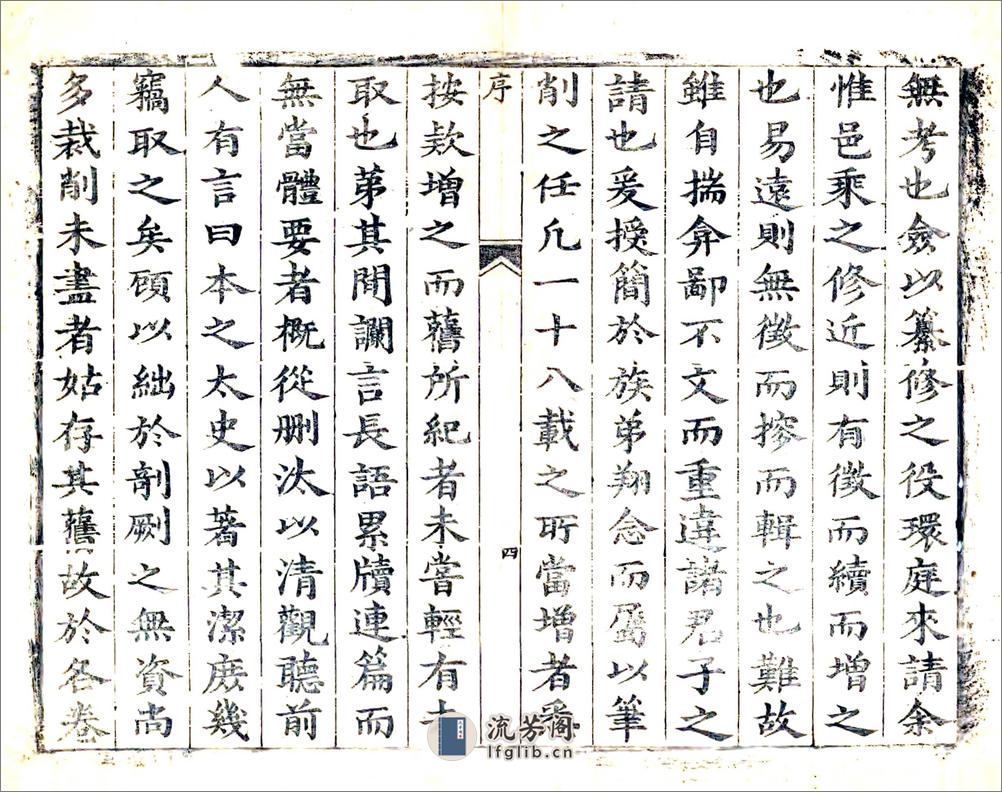 無考也僉以纂修之役環庭來請余
惟邑乘之修近則有徵而續而增之
也易遠則無徵而摉而輯之也難故
雖自揣弇鄙不文而重違諸君子之
請也爰授簡於族弟翔念而屬以筆
削之任凡一十八載之所當增者
序
四
按欵增之而舊所紀者未嘗輕有
取也苐其間讕言長語累牘連篇而
無當體要者槪從刪汰以清觀聽前
人有言曰本之太史以著其潔庶幾
竊取之矣顧以絀於剞劂之無資尚
多裁削未盡者姑存其舊故於各卷
流芳阁
lfglib.cn